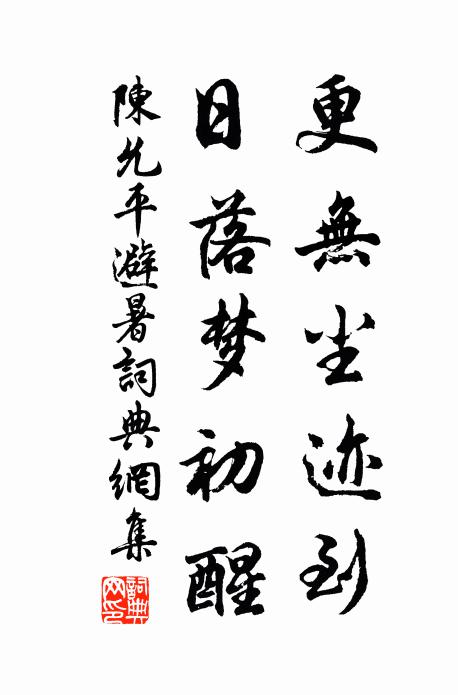 更無尘迹到
日落梦初醒
陳允平避暑詞典網集
詞典网印